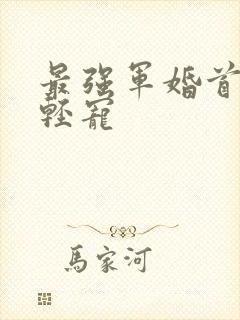 最强軍婚首
輕寵
馬家河